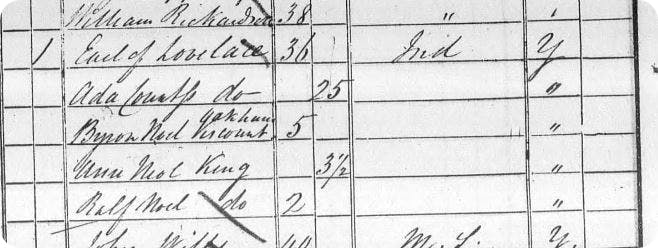 William Richardson 38 "
1 Earl of Lovelace 36 Ind Y
Ada Countss do 25 "
Byron Noel Oakham Viscount 5 "
Ann Noel King 3½ "
Ralf Noel do 2 "
John